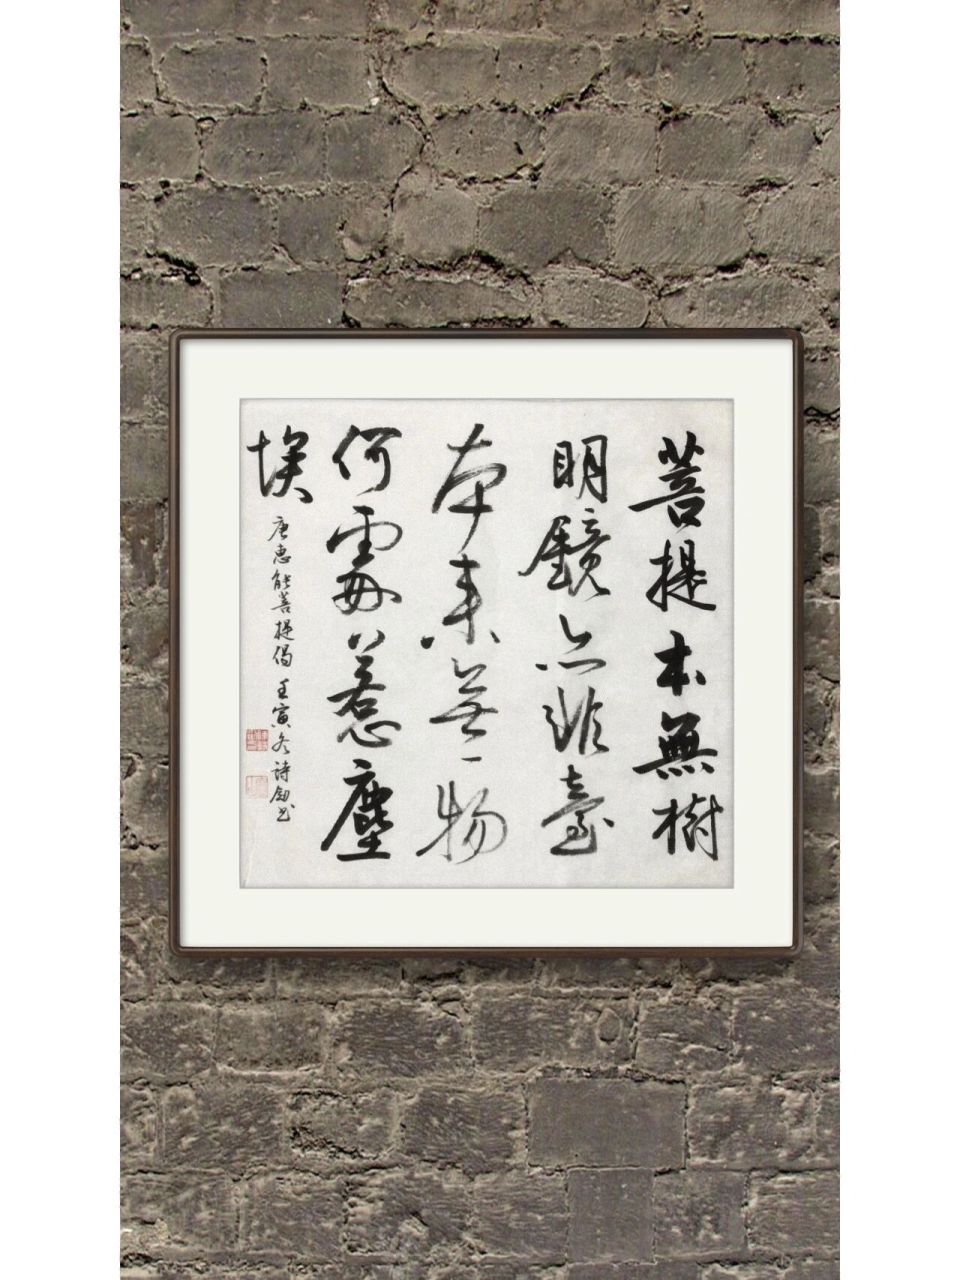 菩提本無樹
明鏡亦非臺
本来無一物
何需惹塵
埃
唐惠能菩提偈 壬寅冬 诗剑书